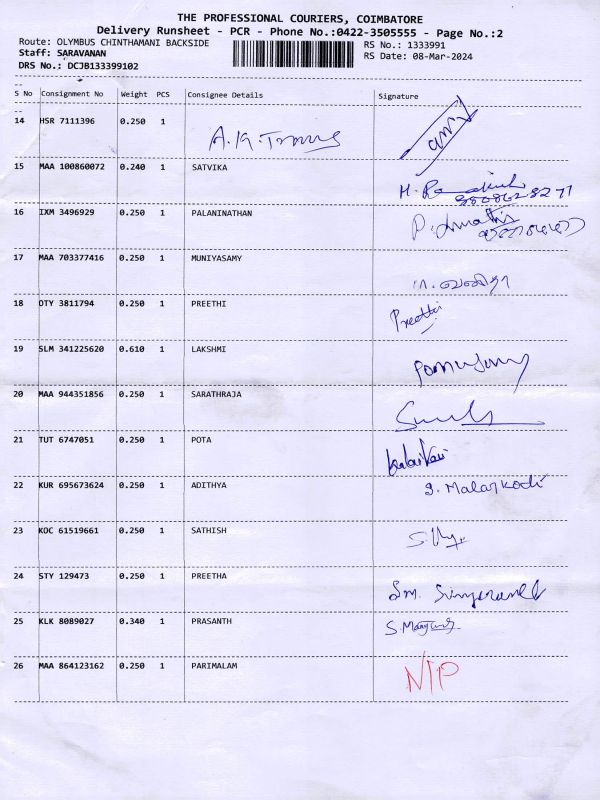 THE PROFESSIONAL COURIERS, COIMBATORE
Delivery Runsheet - PCR - Phone No.:0422-3505555 - Page No.:2
Route: OLYMBUS CHINTHAMANI BACKSIDE
RS No.: 1333991
Staff: SARAVANAN
RS Date: 08-Mar-2024
DRS No.: DCJB133399102
S No Consignment No Weight PCS Consignee Details Signature
14 HSR 7111396 0.250 1
15 MAA 100860072 0.240 1 SATVIKA
16 IXM 3496929 0.250 1 PALANINATHAN
17 MAA 703377416 0.250 1 MUNIYASAMY
18 OTY 3811794 0.250 1 PREETHI Preethi
19 SLM 341225620 0.610 1 LAKSHMI
20 MAA 944351856 0.250 1 SARATHRAJA
21 TUT 6747051 0.250 1 POTA
22 KUR 695673624 0.250 1 ADITHYA g. Malarkodi
23 KOC 61519661 0.250 1 SATHISH
24 STY 129473 0.250 1 PREETHA
25 KLK 8089027 0.340 1 PRASANTH
26 MAA 864123162 0.250 1 PARIMALAM N/P